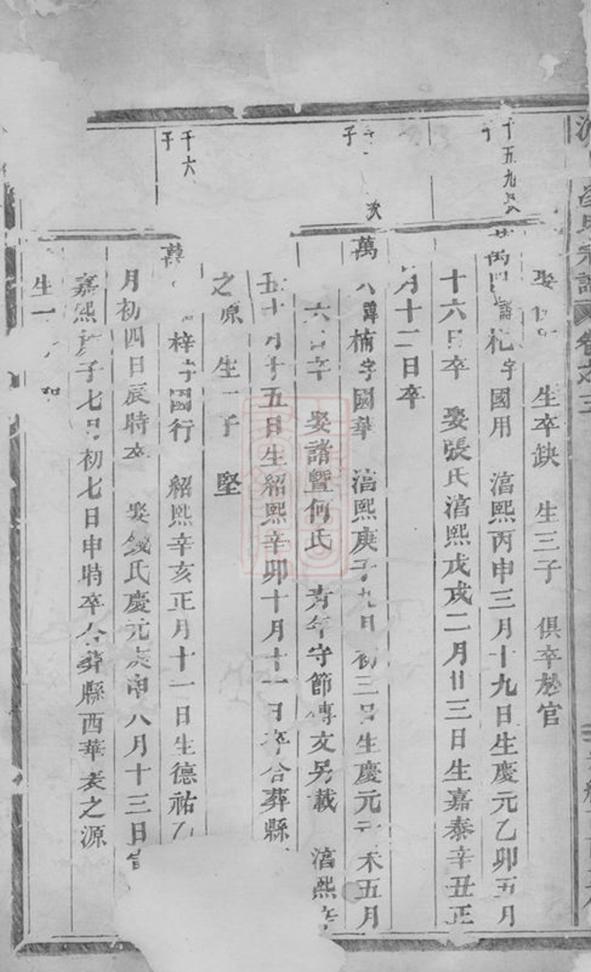 氏宗譜 卷之三
千五九
娶 生卒缺 生三子 俱卒於官
萬四諱杞字國用 湻熙丙申三月十九日生慶元乙卯五月
十六日卒 娶張氏湻熙戊戌二月廿三日生嘉泰辛丑正
月十二日卒
子
萬八諱楠字國華 湻熙庚子九月初三日生慶元 未五月
六日卒 娶諸暨何氏 青年守節傳文另載 湻熙辛
五十月十五日生紹熙辛卯十月十一日卒合葬縣
之源 生一子 堅
千六
子
萬 梓字國行 紹熙辛亥正月十一日生德祐乙
月初四日辰時卒 娶錢氏慶元庚申八月十三日
嘉熙庚子七月初七日申時卒合葬縣西華表之源
生一